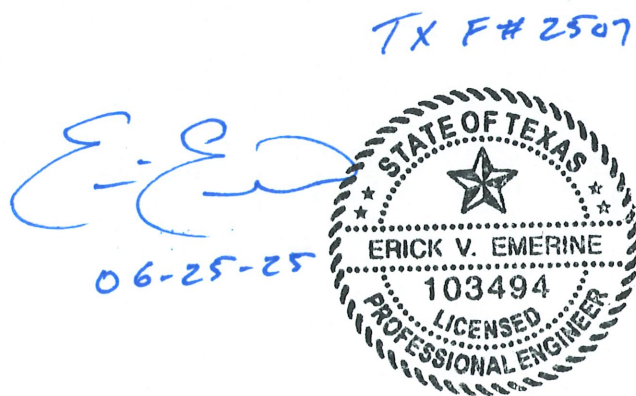 TX F# 2507
06-25-25
STATE OF TEXAS
ERICK V. EMERINE
103494
LICENSED
PROFESSIONAL ENGINEER